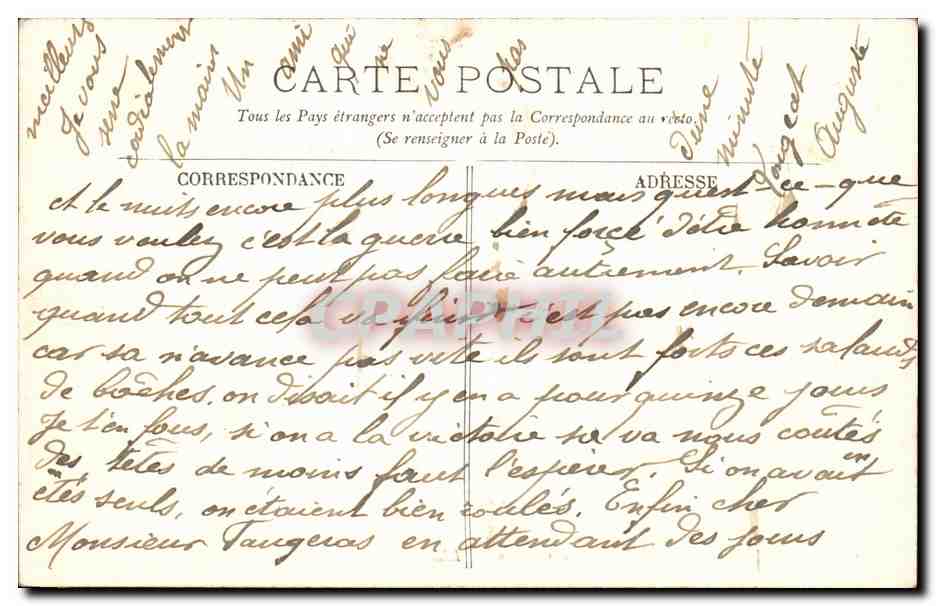 CARTE POSTALE
Tous les Pays étrangers n'acceptent pas la Correspondance au recto.
(Se renseigner à la Poste).
CORRESPONDANCE
ADRESSE
et le nuits encore plus longues mais quest-ce-que
vous voulez c'est la guerre bien forcé d'être honnête
quand on ne peut pas faire autrement. Savoir
quand tout cela va finir c'est pas encore demain
car sa n'avance pas vite ils sont forts ces salauds
de bôches. on disait il y en a pour quinze jours
Je t'en fous, si on a la victoire se va nous coûtés
des têtes de moins faut l'espérer. Si on avait
étés seuls, on étaient bien roulés. Enfin cher
Monsieur Taugeras en attendant des jours
meilleurs
Je vous
serre
cordialement
la main
Un
ami
qui
ne
vous
pas
d'une
minute
Auguste
CPAPHIL